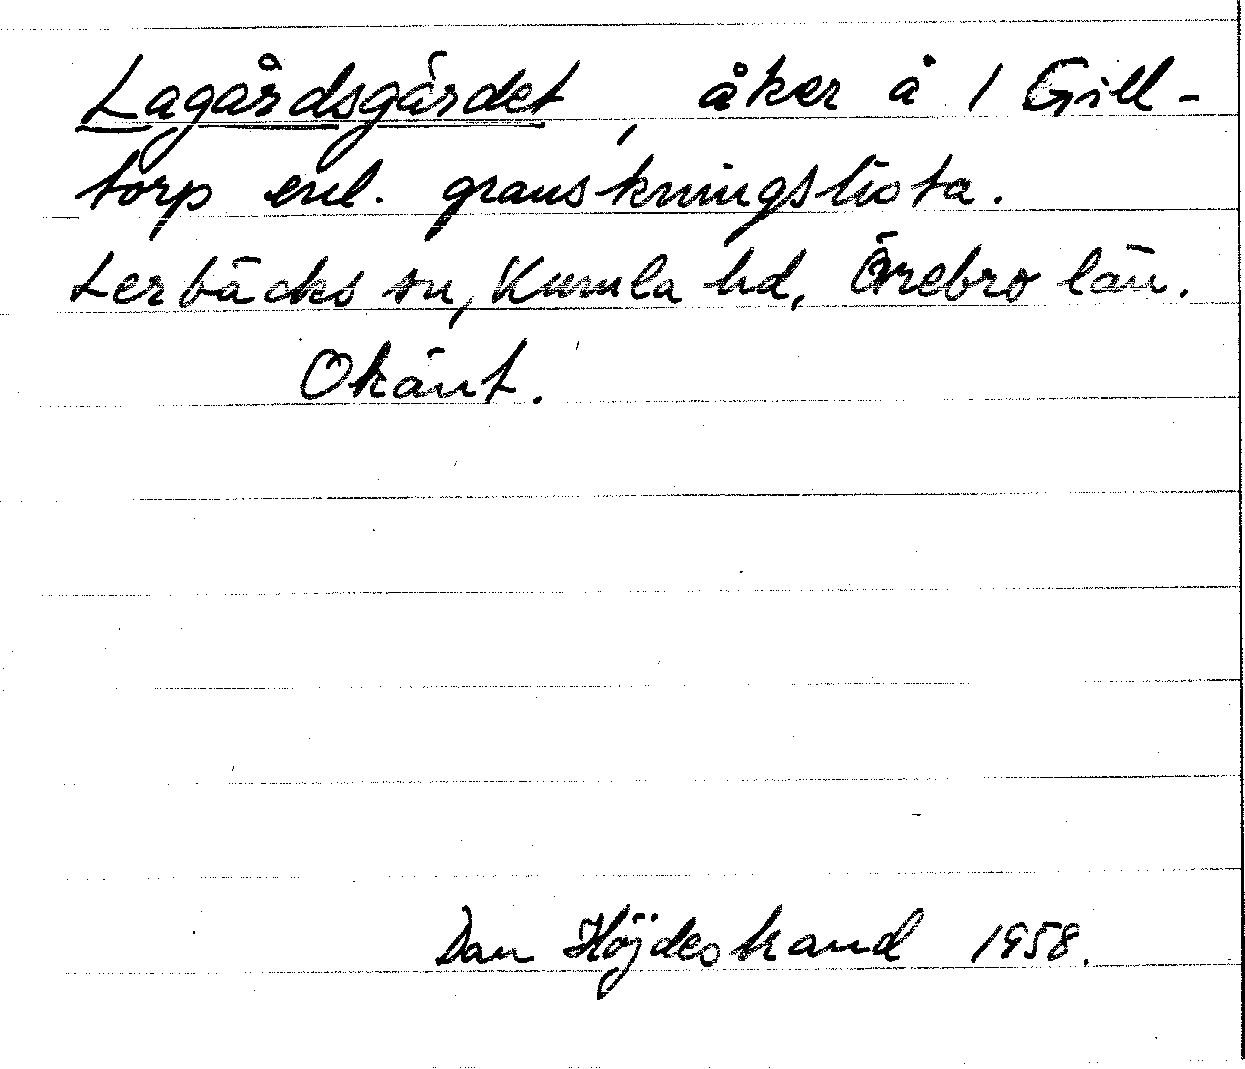 Lagårdsgärdet, åker å 1 Gill-
torp enl. granskningslista.
Lerbäcks sn, Kumla hd, Örebro län.
Okänt.
Dan Höjdestrand 1958.